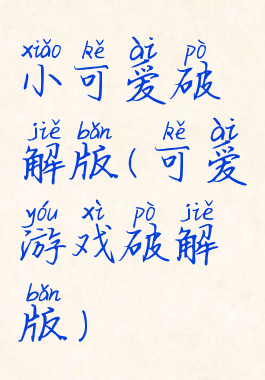 xiǎo kě ài pò
小可爱破
jiě bǎn kě ài
解版(可爱
yóu xì pò jiě
游戏破解
bǎn
版)